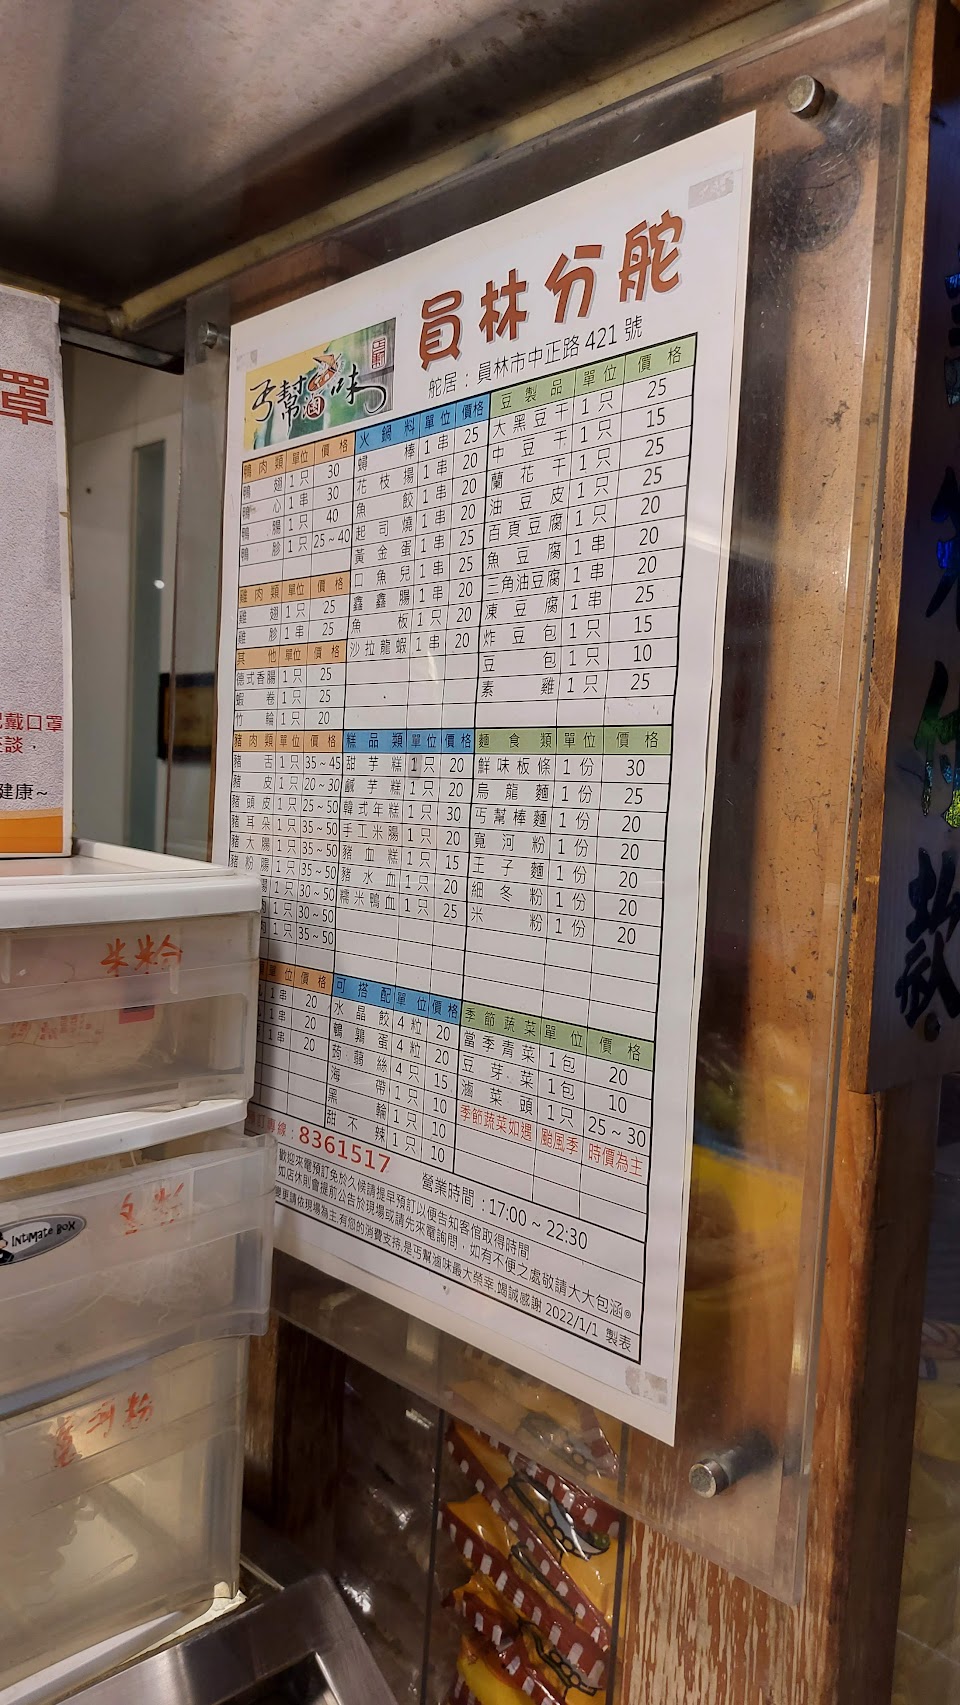 員林分舵
舵居：員林市中正路 421 號
丐幫滷味
鴨肉類 單位 價格
鴨翅 1只 30
鴨心 1串 30
鴨腸 1只 40
鴨胗 1只 25~40
雞肉類 單位 價格
雞翅 1只 25
雞胗 1串 25
其他 單位 價格
德式香腸 1只 25
蝦卷 1只 25
竹輪 1只 20
火鍋料 單位 價格
蟳棒 1串 25
花枝揚 1串 20
魚餃 1串 20
起司燒 1串 20
黃金蛋 1串 25
口魚兒 1串 25
鑫鑫腸 1串 20
魚板 1只 20
沙拉龍蝦 1串 20
豆製品 單位 價格
大黑豆干 1只 25
中豆干 1只 15
蘭花干 1只 25
油豆皮 1只 25
百頁豆腐 1只 20
魚豆腐 1串 20
三角油豆腐 1串 20
凍豆腐 1串 25
炸豆包 1只 15
豆包 1只 10
素雞 1只 25
豬肉類 單位 價格
豬舌 1只 35~45
豬皮 1只 20~30
豬頭皮 1只 25~50
豬耳朵 1只 35~50
豬大腸 1只 35~50
豬粉腸 1只 35~50
腸 1只 30~50
1只 30~50
肉 1只 35~50
糕品類 單位 價格
甜芋糕 1只 20
鹹芋糕 1只 20
韓式年糕 1只 30
手工米腸 1只 20
豬血糕 1只 15
豬水血 1只 20
糯米鴨血 1只 25
麵食類 單位 價格
鮮味板條 1份 30
烏龍麵 1份 25
丐幫棒麵 1份 20
寬河粉 1份 20
王子麵 1份 20
細冬粉 1份 20
米粉 1份 20
單位 價格
1串 20
1串 20
1串 20
可搭配 單位 價格
水晶餃 4粒 20
鵪鶉蛋 4粒 20
蒟蒻絲 4只 15
海帶 1只 10
黑輪 1只 10
甜不辣 1只 10
季節蔬菜 單位 價格
當季青菜 1包 20
豆芽菜 1包 10
滷菜頭 1只 25~30
季節蔬菜如遇 颱風季 時價為主
訂專線：8361517
營業時間：17:00～22:30
歡迎來電預訂免於久候請提早預訂以便告知客倌取得時間
如店休則會提前公告於現場或請先來電詢問，如有不便之處敬請大大包涵
變更請依現場為主,有您的消費支持,是丐幫滷味最大榮幸,竭誠感謝 2022/1/1 製表
罩
戴口罩
談，
健康~
米粉
INTIMATE BOX
冬粉
寬河粉